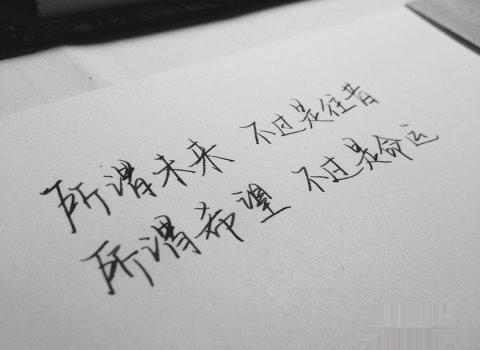 所谓未来 不过是往昔
所谓希望 不过是命运